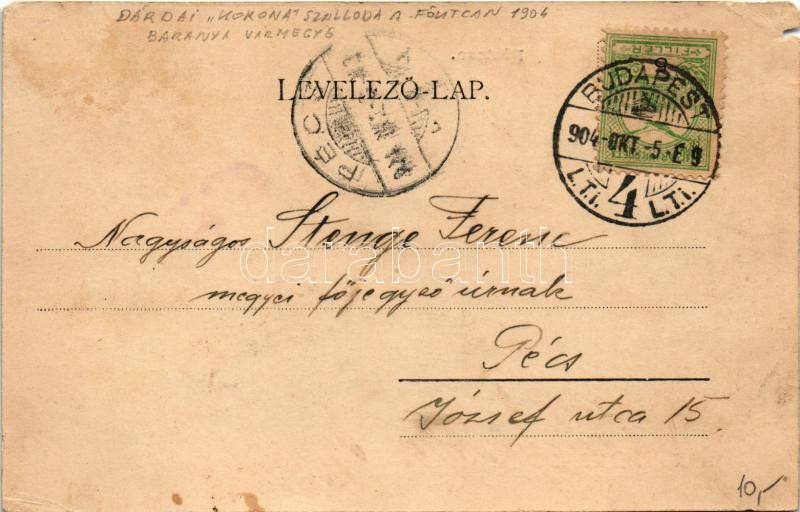 DÁRDAI „KORONA" SZÁLLODA A FŐUTCÁN 1904
BARANYA VÁRMEGYE
FILLÉR
LEVELEZŐ-LAP.
PÉCS
BUDAPEST
904-OKT.-5. E 9
L.T.i. 4 L.T.i.
Nagyságos Stenge Ferenc
darabanth
megyei főjegyző úrnak
Pécs
József utca 15.
10,-